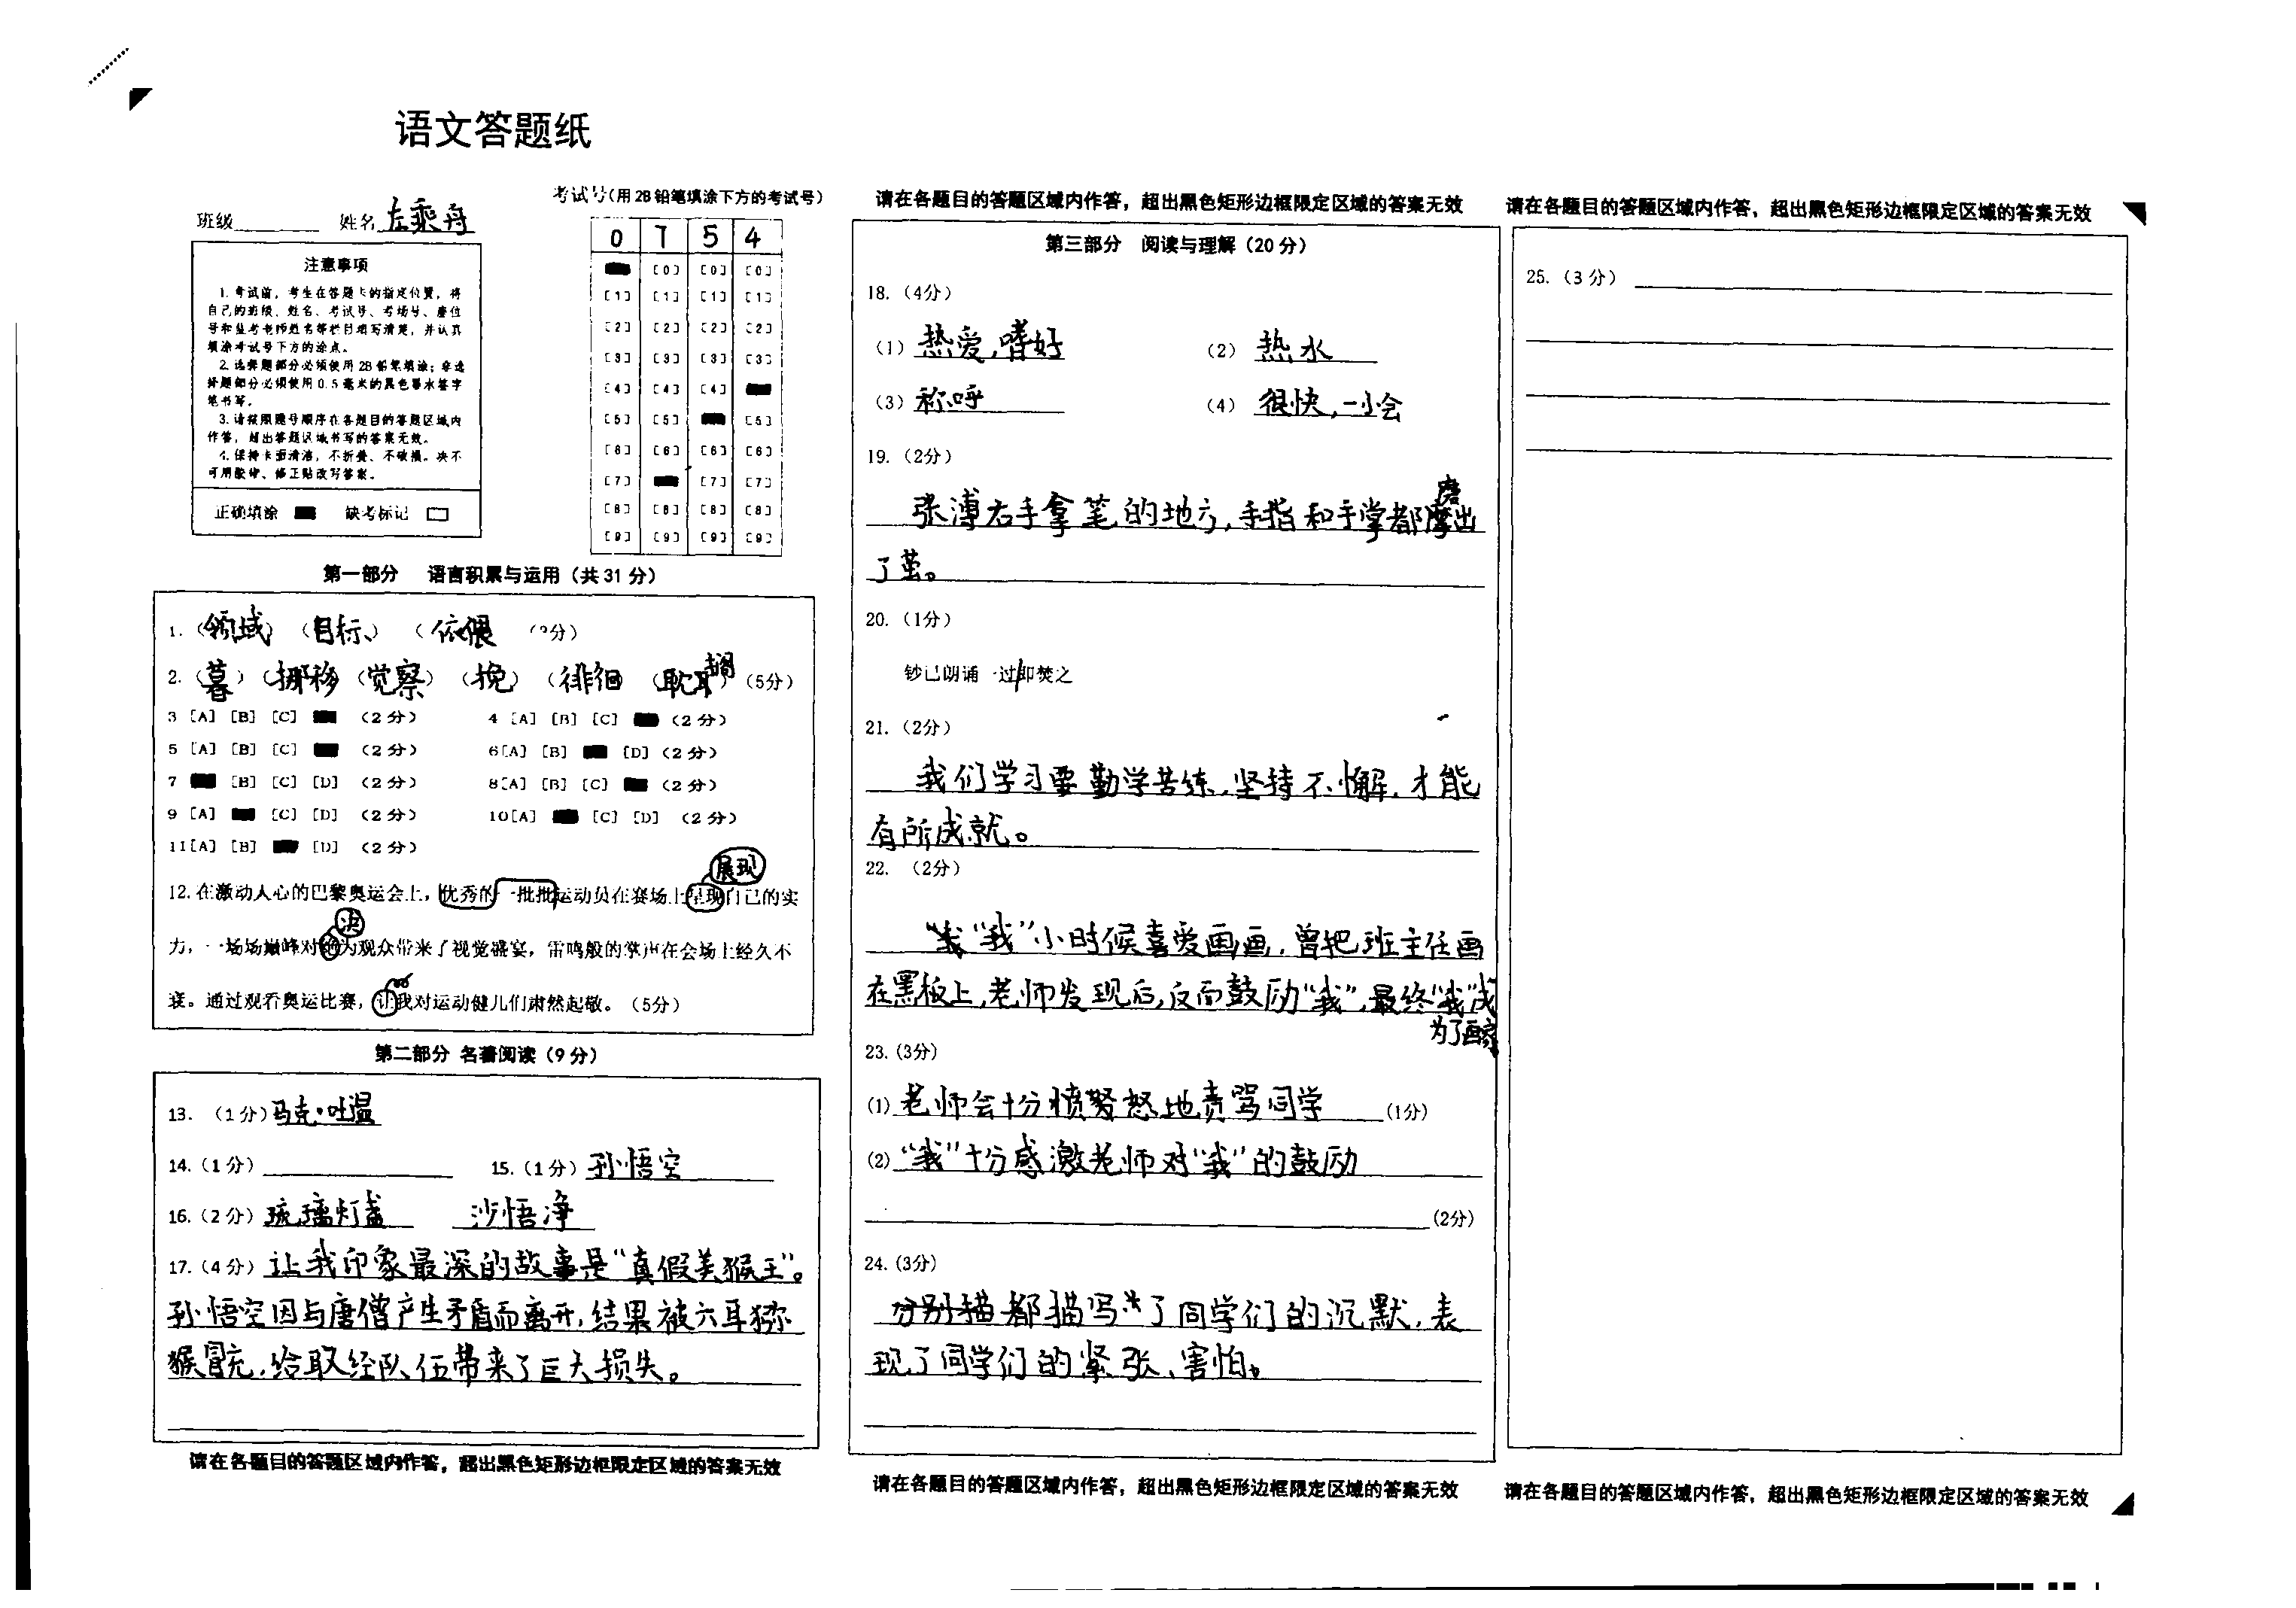 语文答题纸
班级 姓名 左乘舟
考试号(用2B铅笔填涂下方的考试号)
0 7 5 4
[0] [0] [0]
[1] [1] [1] [1]
[2] [2] [2] [2]
[3] [3] [3] [3]
[4] [4] [4]
[5] [5] [5]
[6] [6] [6] [6]
[7] [7] [7]
[8] [8] [8] [8]
[9] [9] [9] [9]
注意事项
1. 考试前，考生在答题卡的指定位置，将
自己的班级、姓名、考试号、考场号、座位
号和监考老师姓名等栏目填写清楚，并认真
填涂考试号下方的涂点。
2. 选择题部分必须使用2B铅笔填涂；非选
择题部分必须使用0.5毫米的黑色墨水签字
笔书写。
3. 请按照题号顺序在各题目的答题区域内
作答，超出答题区域书写的答案无效。
4. 保持卡面清洁，不折叠、不破损。决不
可用胶带、修正贴改写答案。
正确填涂 缺考标记
第一部分 语言积累与运用（共31分）
1.（领域）（目标）（依偎 （分）
2.（暮）（挪移（觉察）（挽）（徘徊 （耽搁）（5分）
3 [A] [B] [C] （2分） 4 [A] [B] [C] （2分）
5 [A] [B] [C] （2分） 6[A] [B] [D]（2分）
7 [B] [C] [D] （2分） 8[A] [B] [C] （2分）
9 [A] [C] [D] （2分） 10[A] [C] [D] （2分）
11[A] [B] [D] （2分）
展现
12. 在激动人心的巴黎奥运会上，优秀的一批批运动员在赛场上呈现自己的实
决
力，一场场巅峰对绝为观众带来了视觉盛宴，雷鸣般的掌声在会场上经久不
衰。通过观看奥运比赛，让我对运动健儿们肃然起敬。（5分）
第二部分 名著阅读（9分）
13. （1分）马克·吐温
14.（1分） 15.（1分）孙悟空
16.（2分）琉璃灯盏 沙悟净
17.（4分）让我印象最深的故事是“真假美猴王”。
孙悟空因与唐僧产生矛盾而离开，结果被六耳猕
猴冒充，给取经队伍带来了巨大损失。
请在各题目的答题区域内作答，超出黑色矩形边框限定区域的答案无效
请在各题目的答题区域内作答，超出黑色矩形边框限定区域的答案无效
第三部分 阅读与理解（20分）
18.（4分）
（1）热爱，嗜好 （2）热水
（3）称呼 （4）很快，一小会
19.（2分）
张溥右手拿笔的地方，手指和手掌都磨出
了茧。
20.（1分）
钞已朗诵一过/即焚之
21.（2分）
我们学习要勤学苦练，坚持不懈，才能
有所成就。
22. （2分）
“我”小时候喜爱画画，曾把班主任画
在黑板上，老师发现后，反而鼓励“我”，最终“我”成
为了画家
23.（3分）
(1)老师会十分愤怒地责骂同学 (1分)
(2)“我”十分感激老师对“我”的鼓励
(2分)
24.（3分）
分别描都描写了同学们的沉默，表
现了同学们的紧张、害怕。
请在各题目的答题区域内作答，超出黑色矩形边框限定区域的答案无效
请在各题目的答题区域内作答，超出黑色矩形边框限定区域的答案无效
25.（3分）
请在各题目的答题区域内作答，超出黑色矩形边框限定区域的答案无效